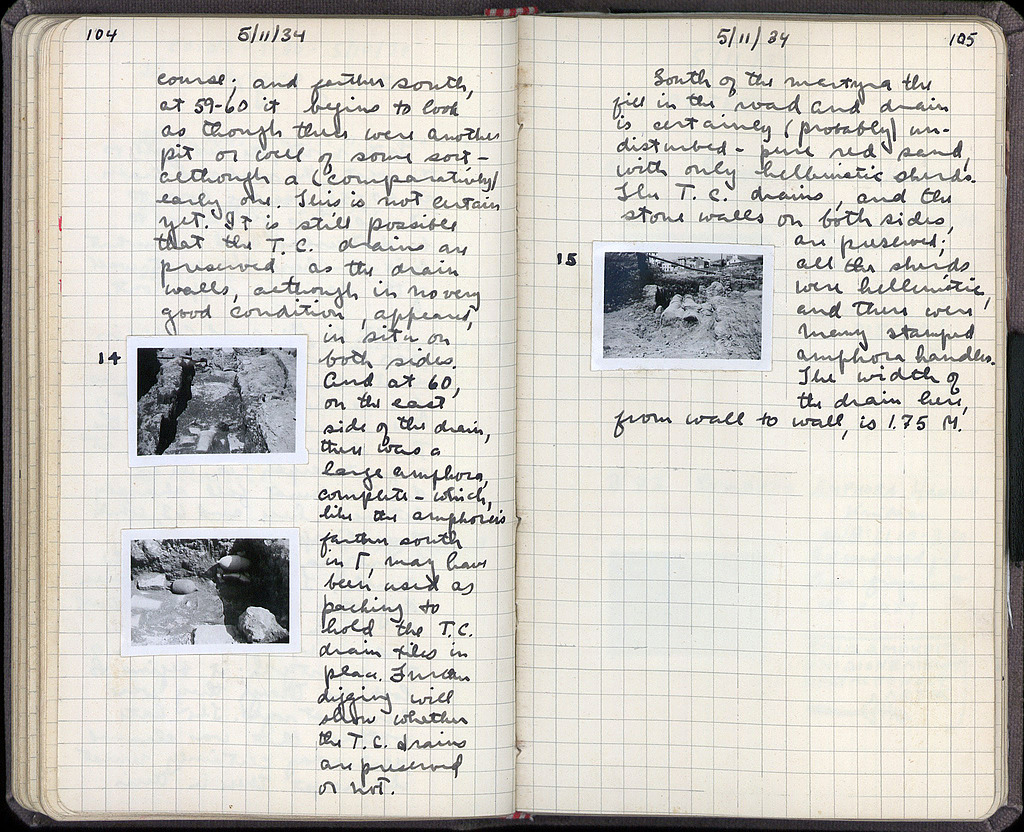 104
5/11/34
course; and farther south,
at 59-60 it begins to look
as though there were another
pit or well of some sort -
although a (comparatively)
early one. This is not certain
yet. It is still possible
that the T. C. drains are
preserved as the drain
walls, although in no very
good condition, appeared,
in situ on
14
both sides.
And at 60,
on the east
side of the drain,
there was a
large amphora,
complete - which,
like the amphoreis
farther south
in Γ, may have
been used as
packing to
hold the T.C.
drain tiles in
place. Further
digging will
show whether
the T.C. drains
are preserved
or not.
5/11/34
105
South of the martyra the
fill in the road and drain
is certainly (probably) un-
disturbed - pure red sand,
with only hellenistic sherds.
The T. C. drains, and the
stone walls on both sides,
are preserved;
15
all the sherds
were hellenistic,
and there were
many stamped
amphora handles.
The width of
the drain here,
from wall to wall, is 1.75 M.